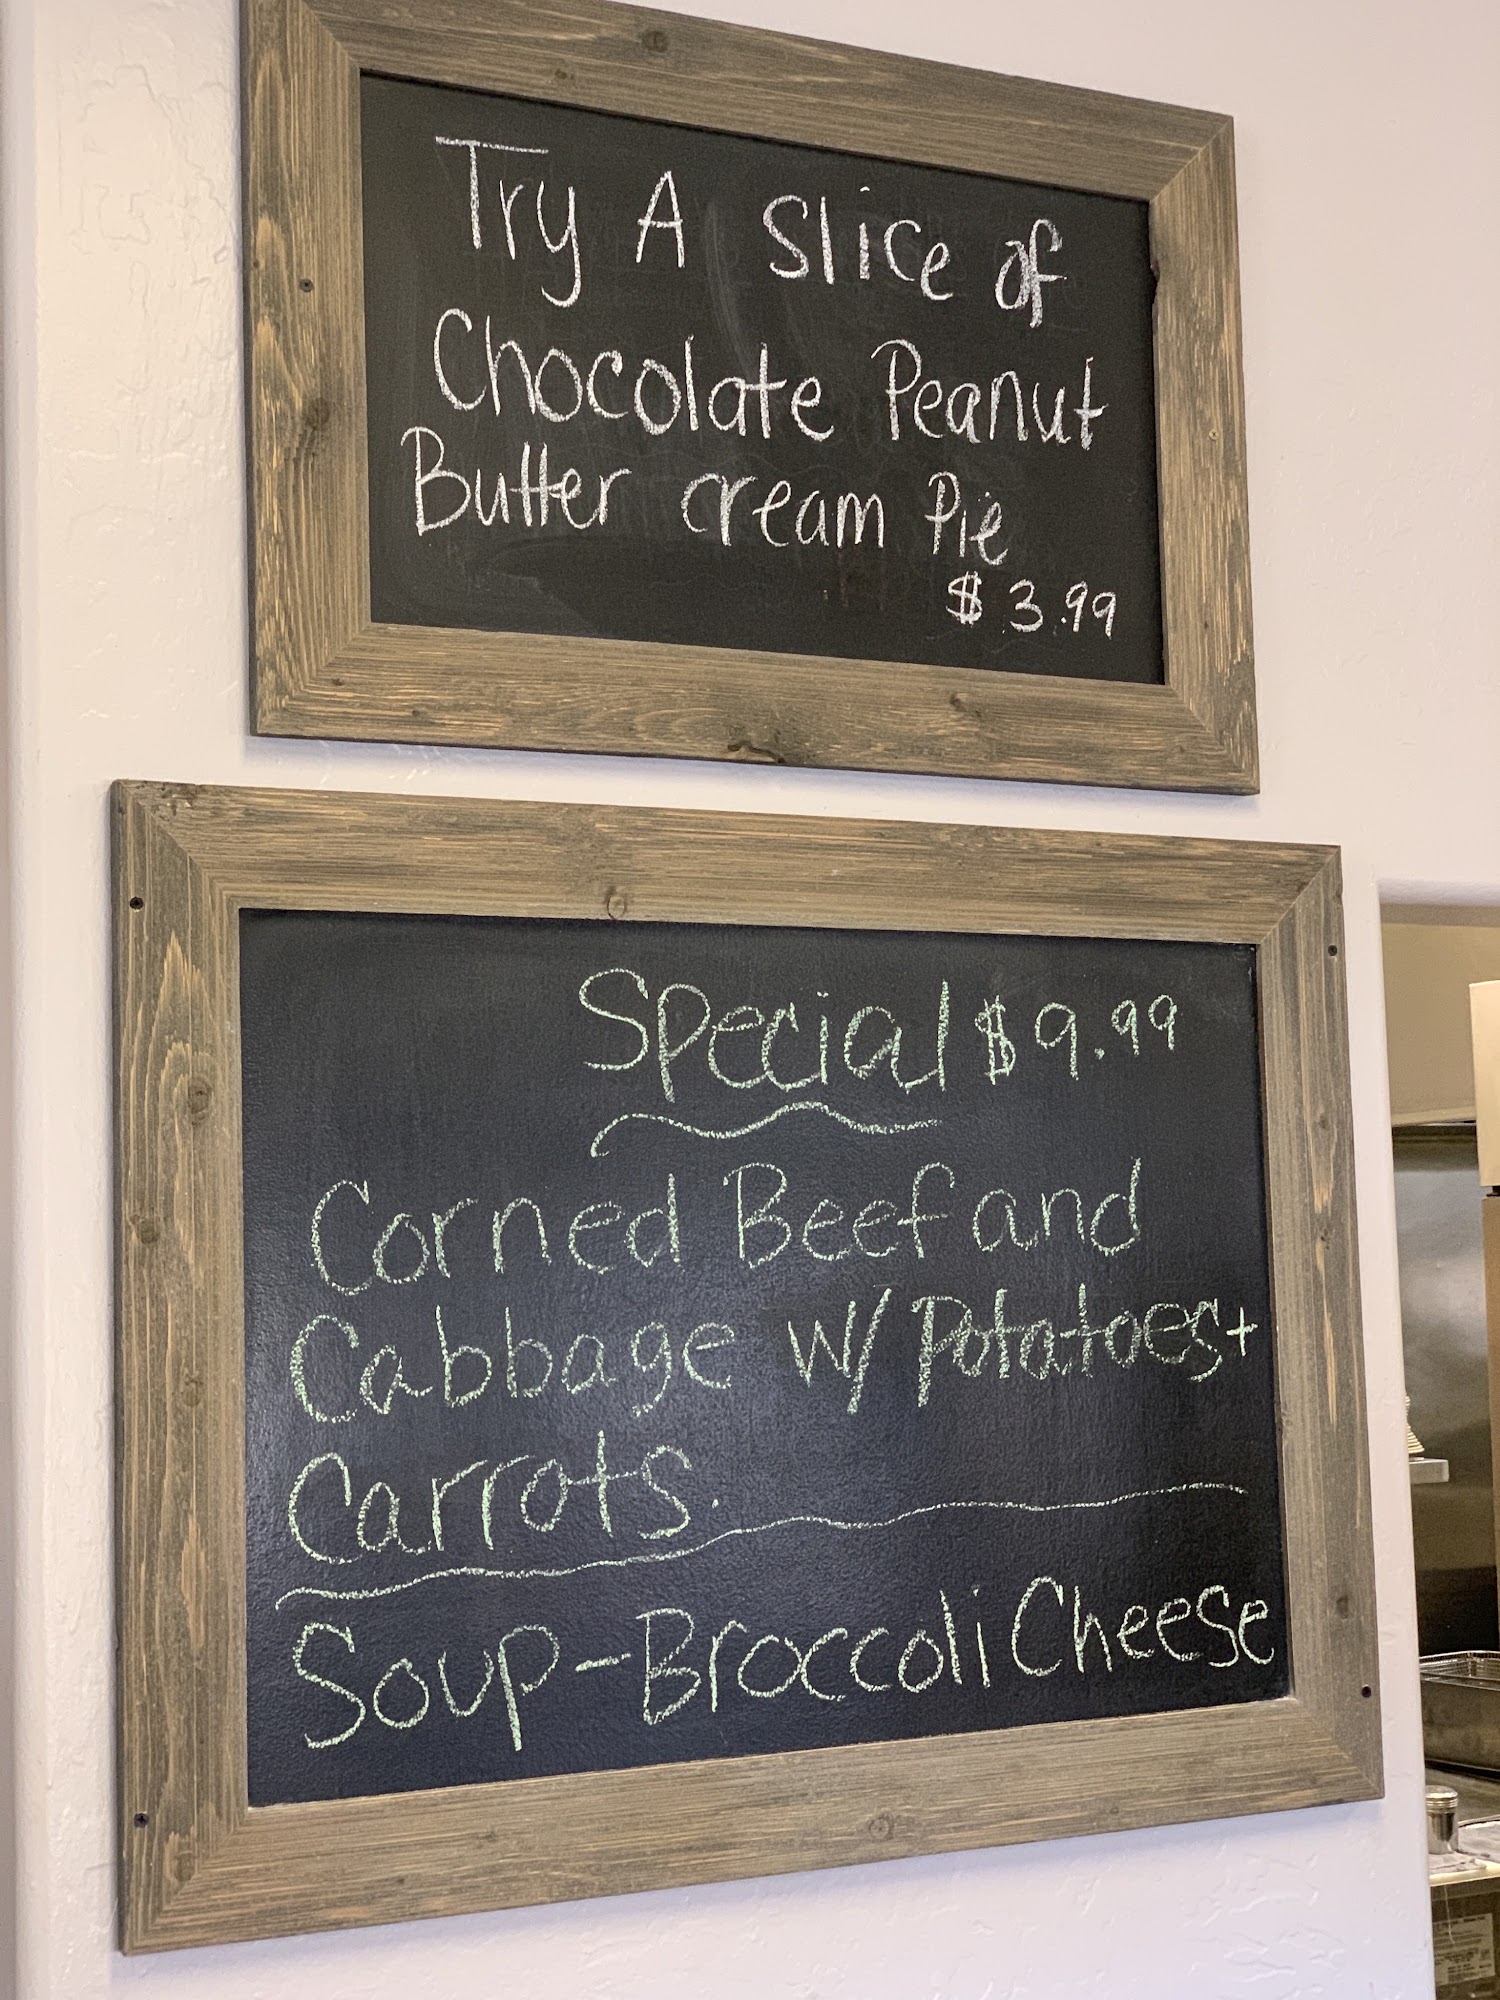 Try A Slice of
Chocolate Peanut
Butter cream Pie
$3.99
Special $9.99
Corned Beef and
Cabbage w/ Potatoes+
Carrots.
Soup-Broccoli Cheese